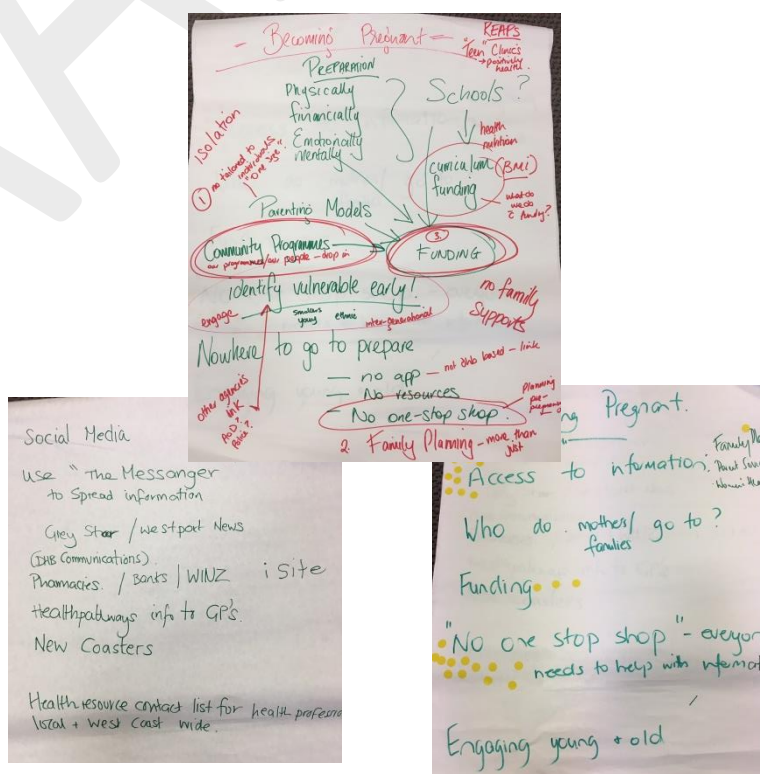 - Becoming Pregnant -
REAPS
"Teen" Clinics
→ positively
health.
PREPARATION
Physically
financially
Emotionally
mentally
Schools ?
health
nutrition
curiculum (BMI)
funding
what do
we do
c funding?
Isolation
① no tailored to
individuals
"One size".
Parenting Models
Community Programmes
our programmes/our people - drop in
3.
FUNDING
identify vulnerable early!
engage
smokers
young
ethnic
inter-generational
no family
supports
Nowhere to go to prepare
- no app - not DHB based - link
- No resources
- No one-stop shop.
Planning
pre-
pregnancy
other agencies
link
AOD?
Police?
2. Family Planning - more than
just
Social Media
use "The Messonger
to Spread information
Grey Star / westport News
(DHB Communications).
Pharmacies. / Banks / WINZ
i Site
Healthpathways info to GP's.
New Coasters
Health resource contact list for health profession
local + West Coast wide.
ng Pregnant.
Access to information.
Who do mothers/ go to ?
families
Funding
"No one stop shop" - everyon
needs to help with informat
Engaging young + old